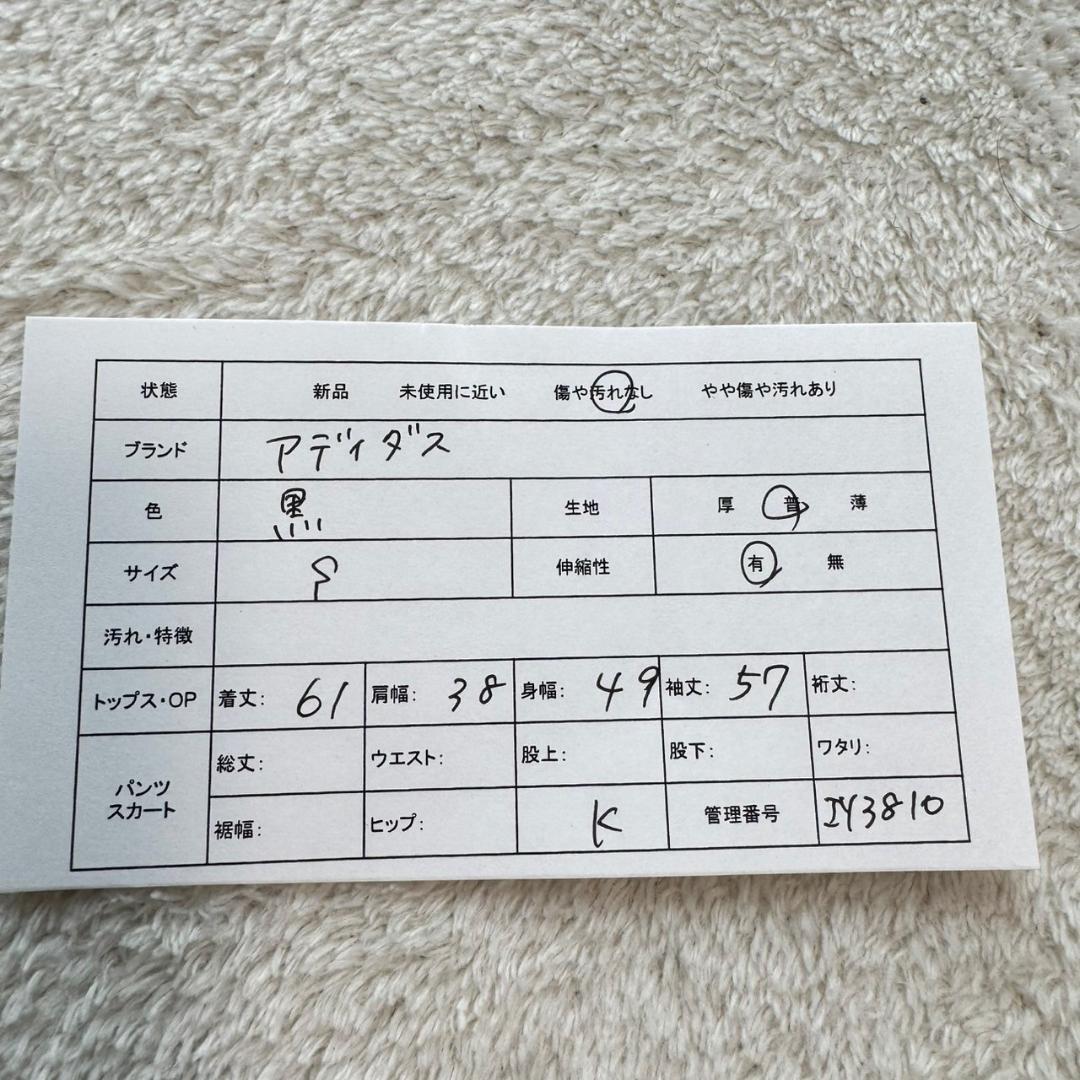 状態 新品 未使用に近い 傷や汚れなし やや傷や汚れあり
ブランド アディダス
色 黒 生地 厚 普 薄
サイズ S 伸縮性 有 無
汚れ・特徴
トップス・OP 着丈: 61 肩幅: 38 身幅: 49 袖丈: 57 裄丈:
パンツ スカート 総丈: ウエスト: 股上: 股下: ワタリ:
裾幅: ヒップ: K 管理番号 IY3810